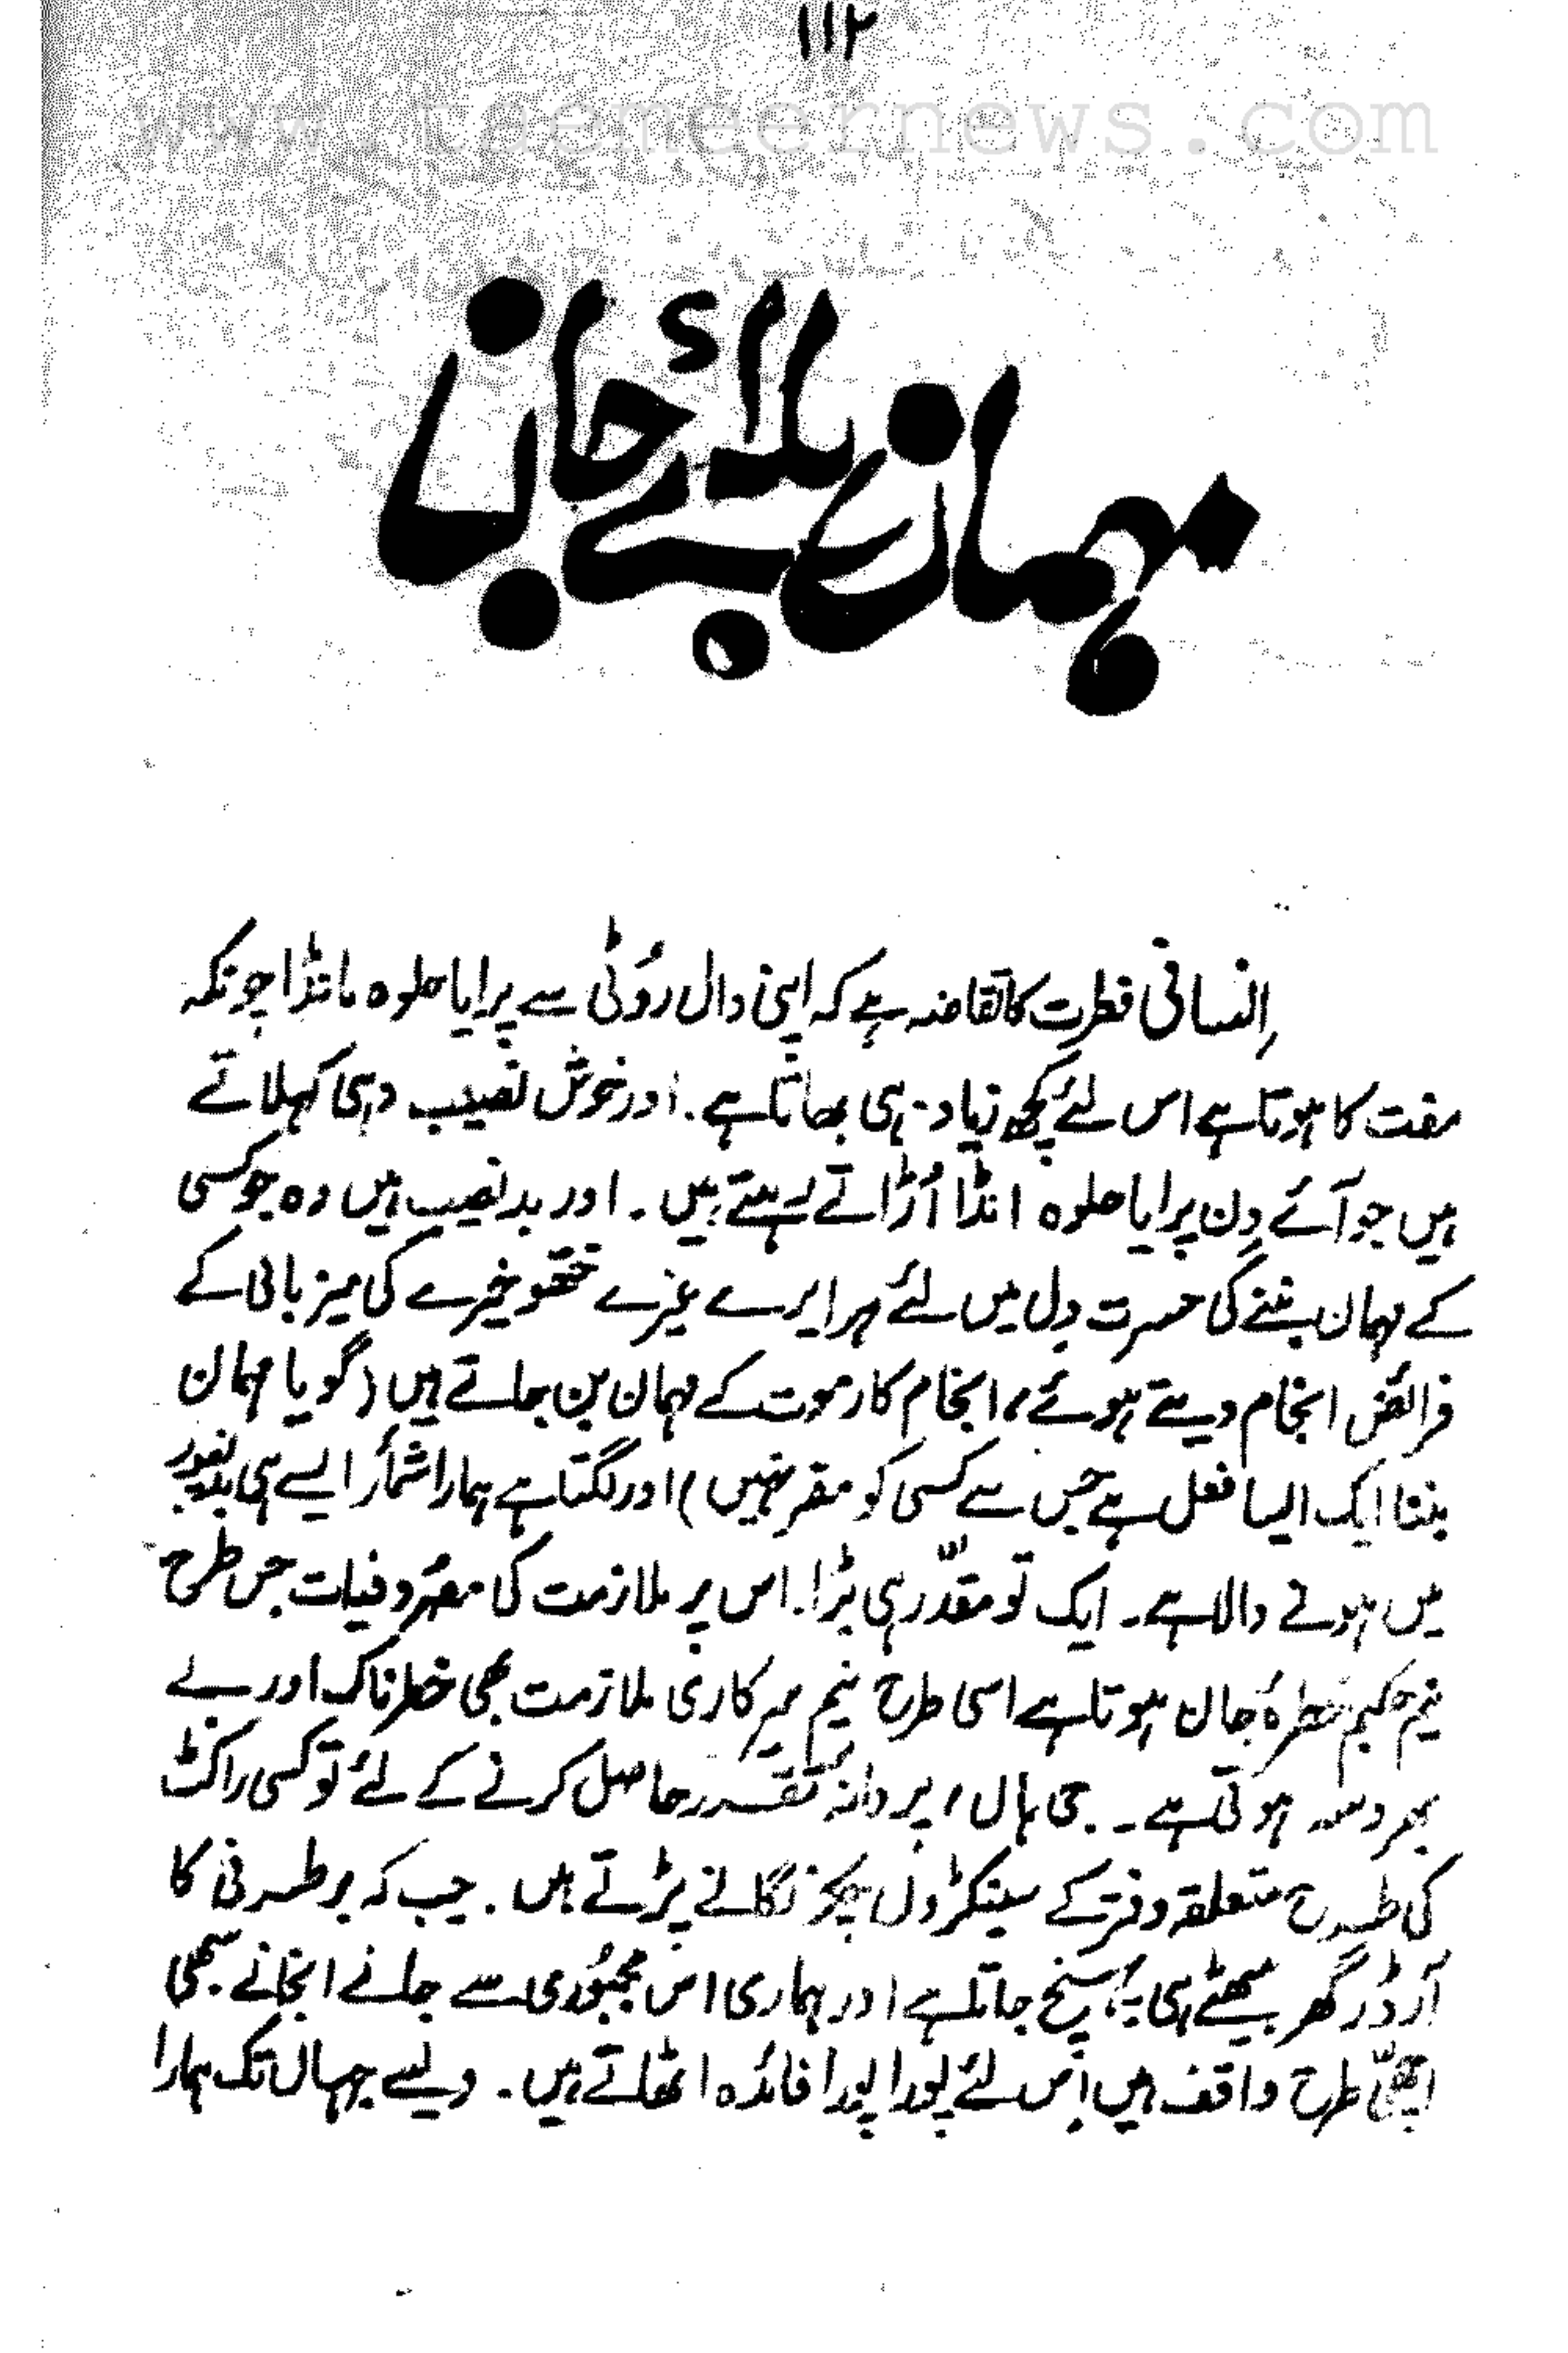 ۱۱۲
www.taemeernews.com
مہمان بلائے بے جان
اِنسانی فطرت کا تقاضہ ہے کہ اپنی دال روُٹی سے پرایا حلوہ مانڈا چونکہ
مفت کا ہوتا ہے اس لئے کچھ زیادہ ہی بھاتا ہے۔ اور خوش نصیب وہی کہلاتے
ہیں جو آئے دِن پرایا حلوہ انڈا اُڑاتے رہتے ہیں۔ اور بدنصیب ہیں وہ جو کسی
کے مہمان بننے کی حسرت دِل میں لئے ہر ایرے غیرے نتھو خیرے کی میزبانی کے
فرائض انجام دیتے ہوئے، انجام کار موت کے مہمان بن جاتے ہیں (گویا مہمان
بننا ایک ایسا فعل ہے جس سے کسی کو مفر نہیں) اور لگتا ہے ہمارا شمار ایسے ہی بدنصیبوں
میں ہونے والا ہے۔ ایک تو مقدّر ہی بُرا۔ اس پر ملازمت کی مصرُوفیات جس طرح
نیم حکیم خطرۂ جان ہوتا ہے اسی طرح نیم سرکاری ملازمت بھی خطرناک اور بے
بھروسہ ہوتی ہے۔ جی ہاں، پروانۂ تقرر حاصل کرنے کے لئے تو کسی راکٹ
کی طرح متعلقہ دفتر کے سینکڑوں چکر لگانے پڑتے ہیں۔ جب کہ برطرفی کا
آرڈر گھر بیٹھے ہی پہنچ جاتا ہے اور ہماری اس مجبُوری سے جانے انجانے سبھی
اچھّی طرح واقف ہیں اِس لئے پورا پورا فائدہ اٹھاتے ہیں۔ ویسے جہاں تک ہمارا